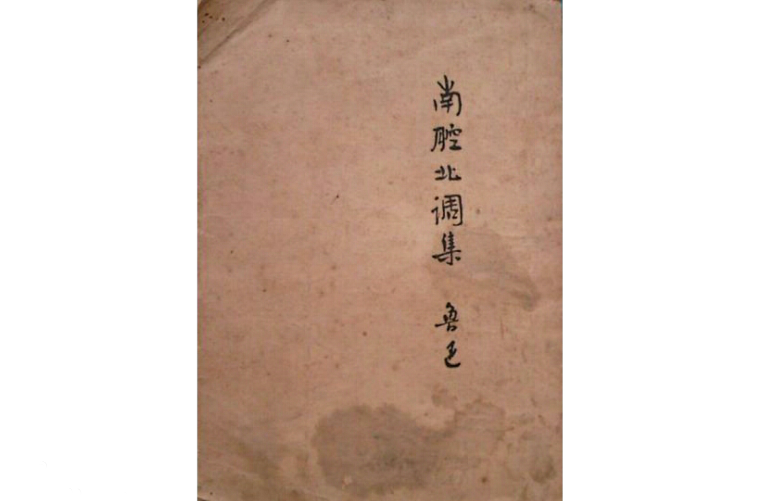 南腔北调集 鲁迅